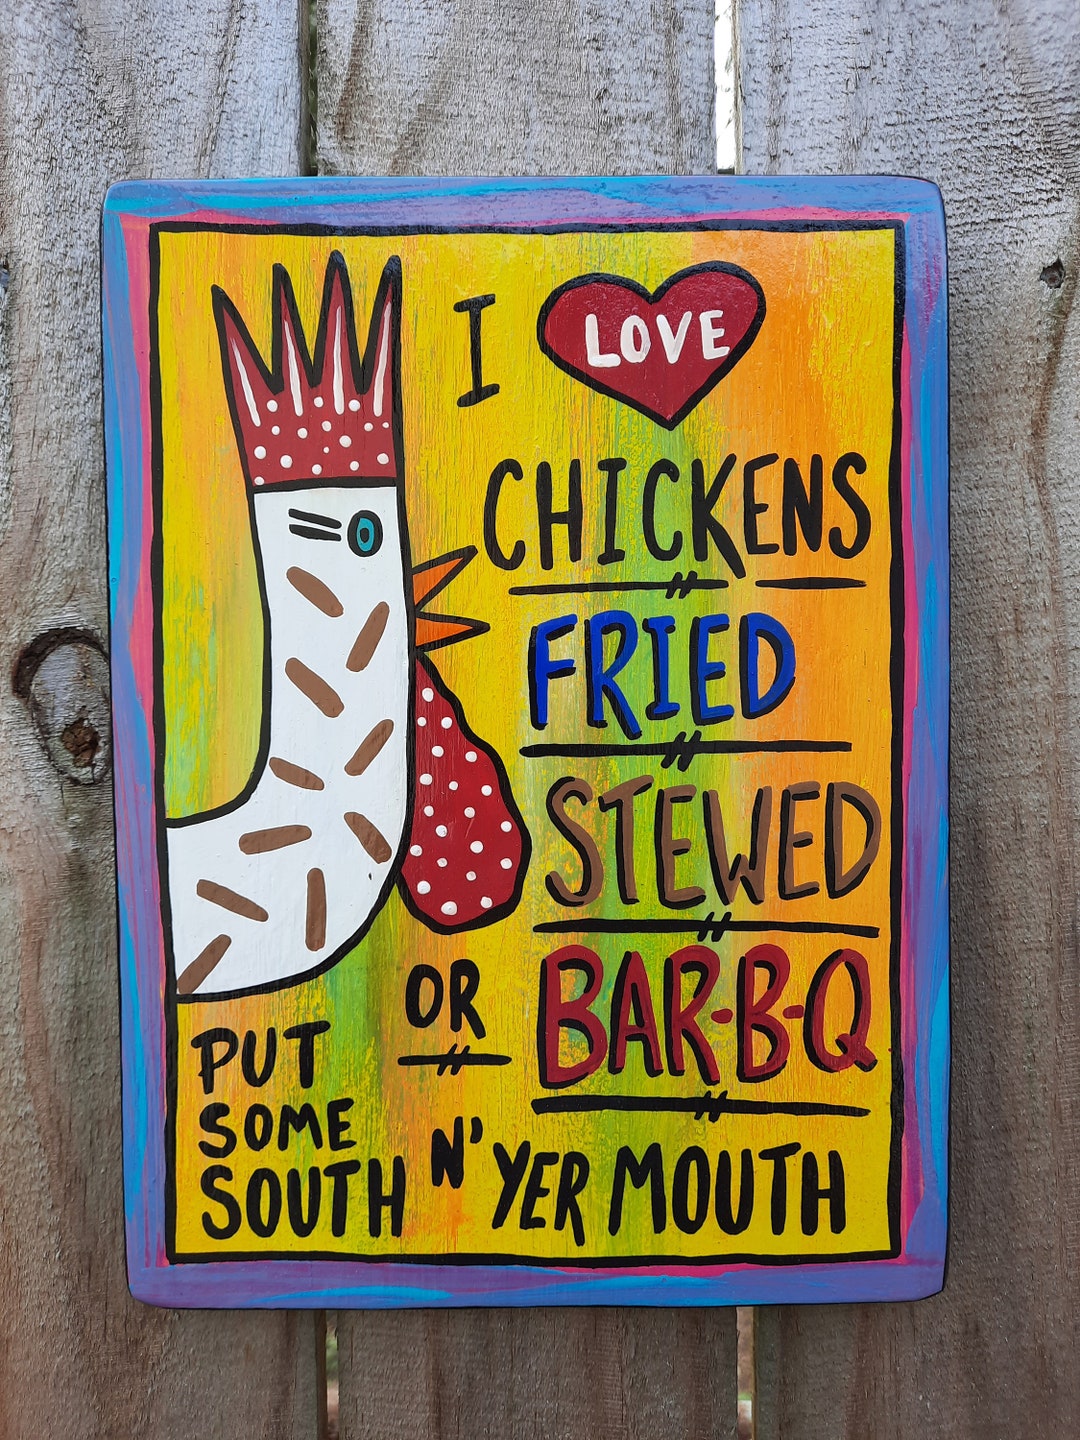 I LOVE
CHICKENS
FRIED
STEWED
OR BAR-B-Q
PUT
SOME
SOUTH N' YER MOUTH